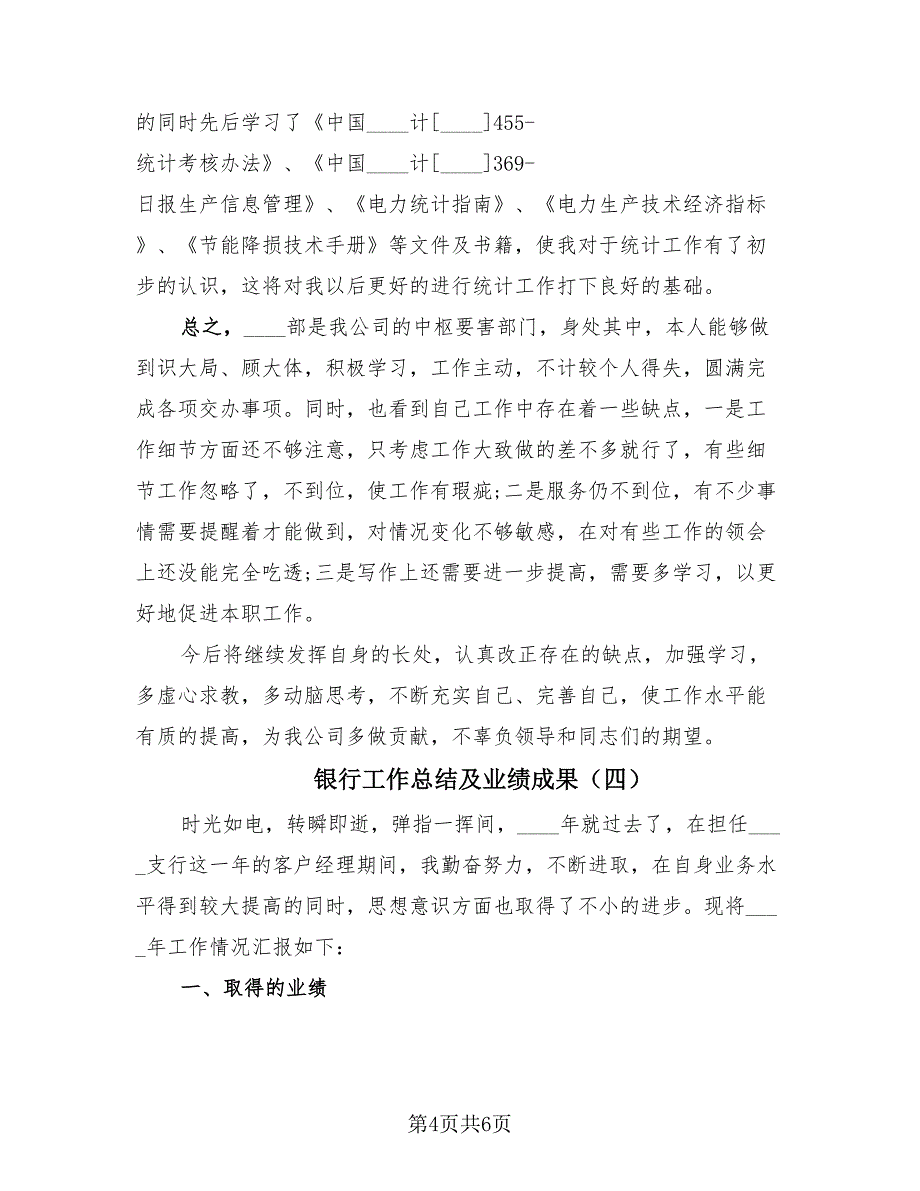 的同时先后学习了《中国____计[____]455-
统计考核办法》、《中国____计[____]369-
日报生产信息管理》、《电力统计指南》、《电力生产技术经济指标
》、《节能降损技术手册》等文件及书籍，使我对于统计工作有了初
步的认识，这将对我以后更好的进行统计工作打下良好的基础。
总之，____部是我公司的中枢要害部门，身处其中，本人能够做
到识大局、顾大体，积极学习，工作主动，不计较个人得失，圆满完
成各项交办事项。同时，也看到自己工作中存在着一些缺点，一是工
作细节方面还不够注意，只考虑工作大致做的差不多就行了，有些细
节工作忽略了，不到位，使工作有瑕疵;二是服务仍不到位，有不少事
情需要提醒着才能做到，对情况变化不够敏感，在对有些工作的领会
上还没能完全吃透;三是写作上还需要进一步提高，需要多学习，以更
好地促进本职工作。
今后将继续发挥自身的长处，认真改正存在的缺点，加强学习，
多虚心求教，多动脑思考，不断充实自己、完善自己，使工作水平能
有质的提高，为我公司多做贡献，不辜负领导和同志们的期望。
银行工作总结及业绩成果（四）
时光如电，转瞬即逝，弹指一挥间，____年就过去了，在担任___
_支行这一年的客户经理期间，我勤奋努力，不断进取，在自身业务水
平得到较大提高的同时，思想意识方面也取得了不小的进步。现将___
_年工作情况汇报如下：
一、取得的业绩
第4页共6页